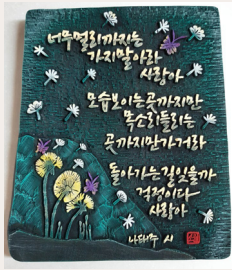 너무멀리까지는
가지말아라
사랑아
모습보이는곳까지만
목소리들리는
곳까지만가거라
돌아가는길잊을까
걱정이다
사랑아
나태주 시